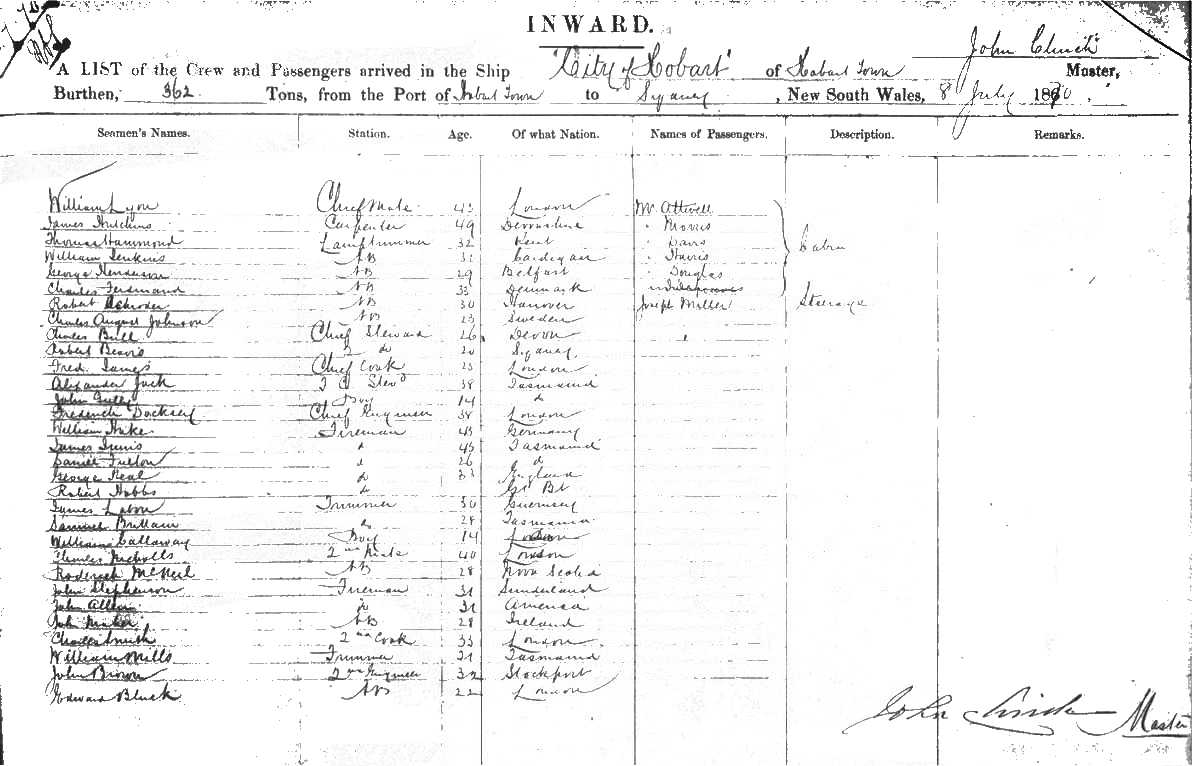 INWARD.
John Clinch
A LIST of the Crew and Passengers arrived in the Ship "City of Hobart" of Hobart Town Master,
Burthen, 362 Tons, from the Port of Hobart Town to Sydney, New South Wales, 8 July 1870.
Seamen's Names. Station. Age. Of what Nation. Names of Passengers. Description. Remarks.
William Lyon Chief Mate 43 London Mr Attwell
James Hutchins Carpenter 49 Devonshire " Morris
Thomas Hammond Lamptrimmer 32 Kent " Davis Cabin
William Jenkins AB Cardigan " Harris
George Henderson AB 29 Belfast " Douglas
Charles Ferdinand AB 33 Denmark
Robert Schroder AB 30 Hanover Joseph Miller Steerage
Charles August Johnson AB 23 Sweden
Charles Bull Chief Steward 26 Devon
Robert Beavis 2 do 20 Sydney
Fred. James Chief Cook 23 London
Alexander Jack Stewd 38 Tasmania
John Tully Boy 14 do
Frederick Docksey Chief Engineer 38 London
William Hake Fireman 43 Germany
James Innis do 45 Tasmania
Daniel Fulton do 26 do
George Neal do England
Robert Hobbs do Gt Bt
James Labon Trimmer 30 Guernsey
Samuel Brittain do 28 Tasmania
William Callaway Boy 14 London
Charles Nicholls 2nd Mate 40 London
Roderick McNeil AB 28 Nova Scotia
John Stephenson Fireman 31 Sunderland
John Allen do 31 America
John AB 28 Ireland
Charles Smith 2nd Cook 33 London
William Mills Trimmer 21 Tasmania
John Brown 2nd Engineer 32 Stockport
Edward Bluck AB 22 London
John Clinch Master